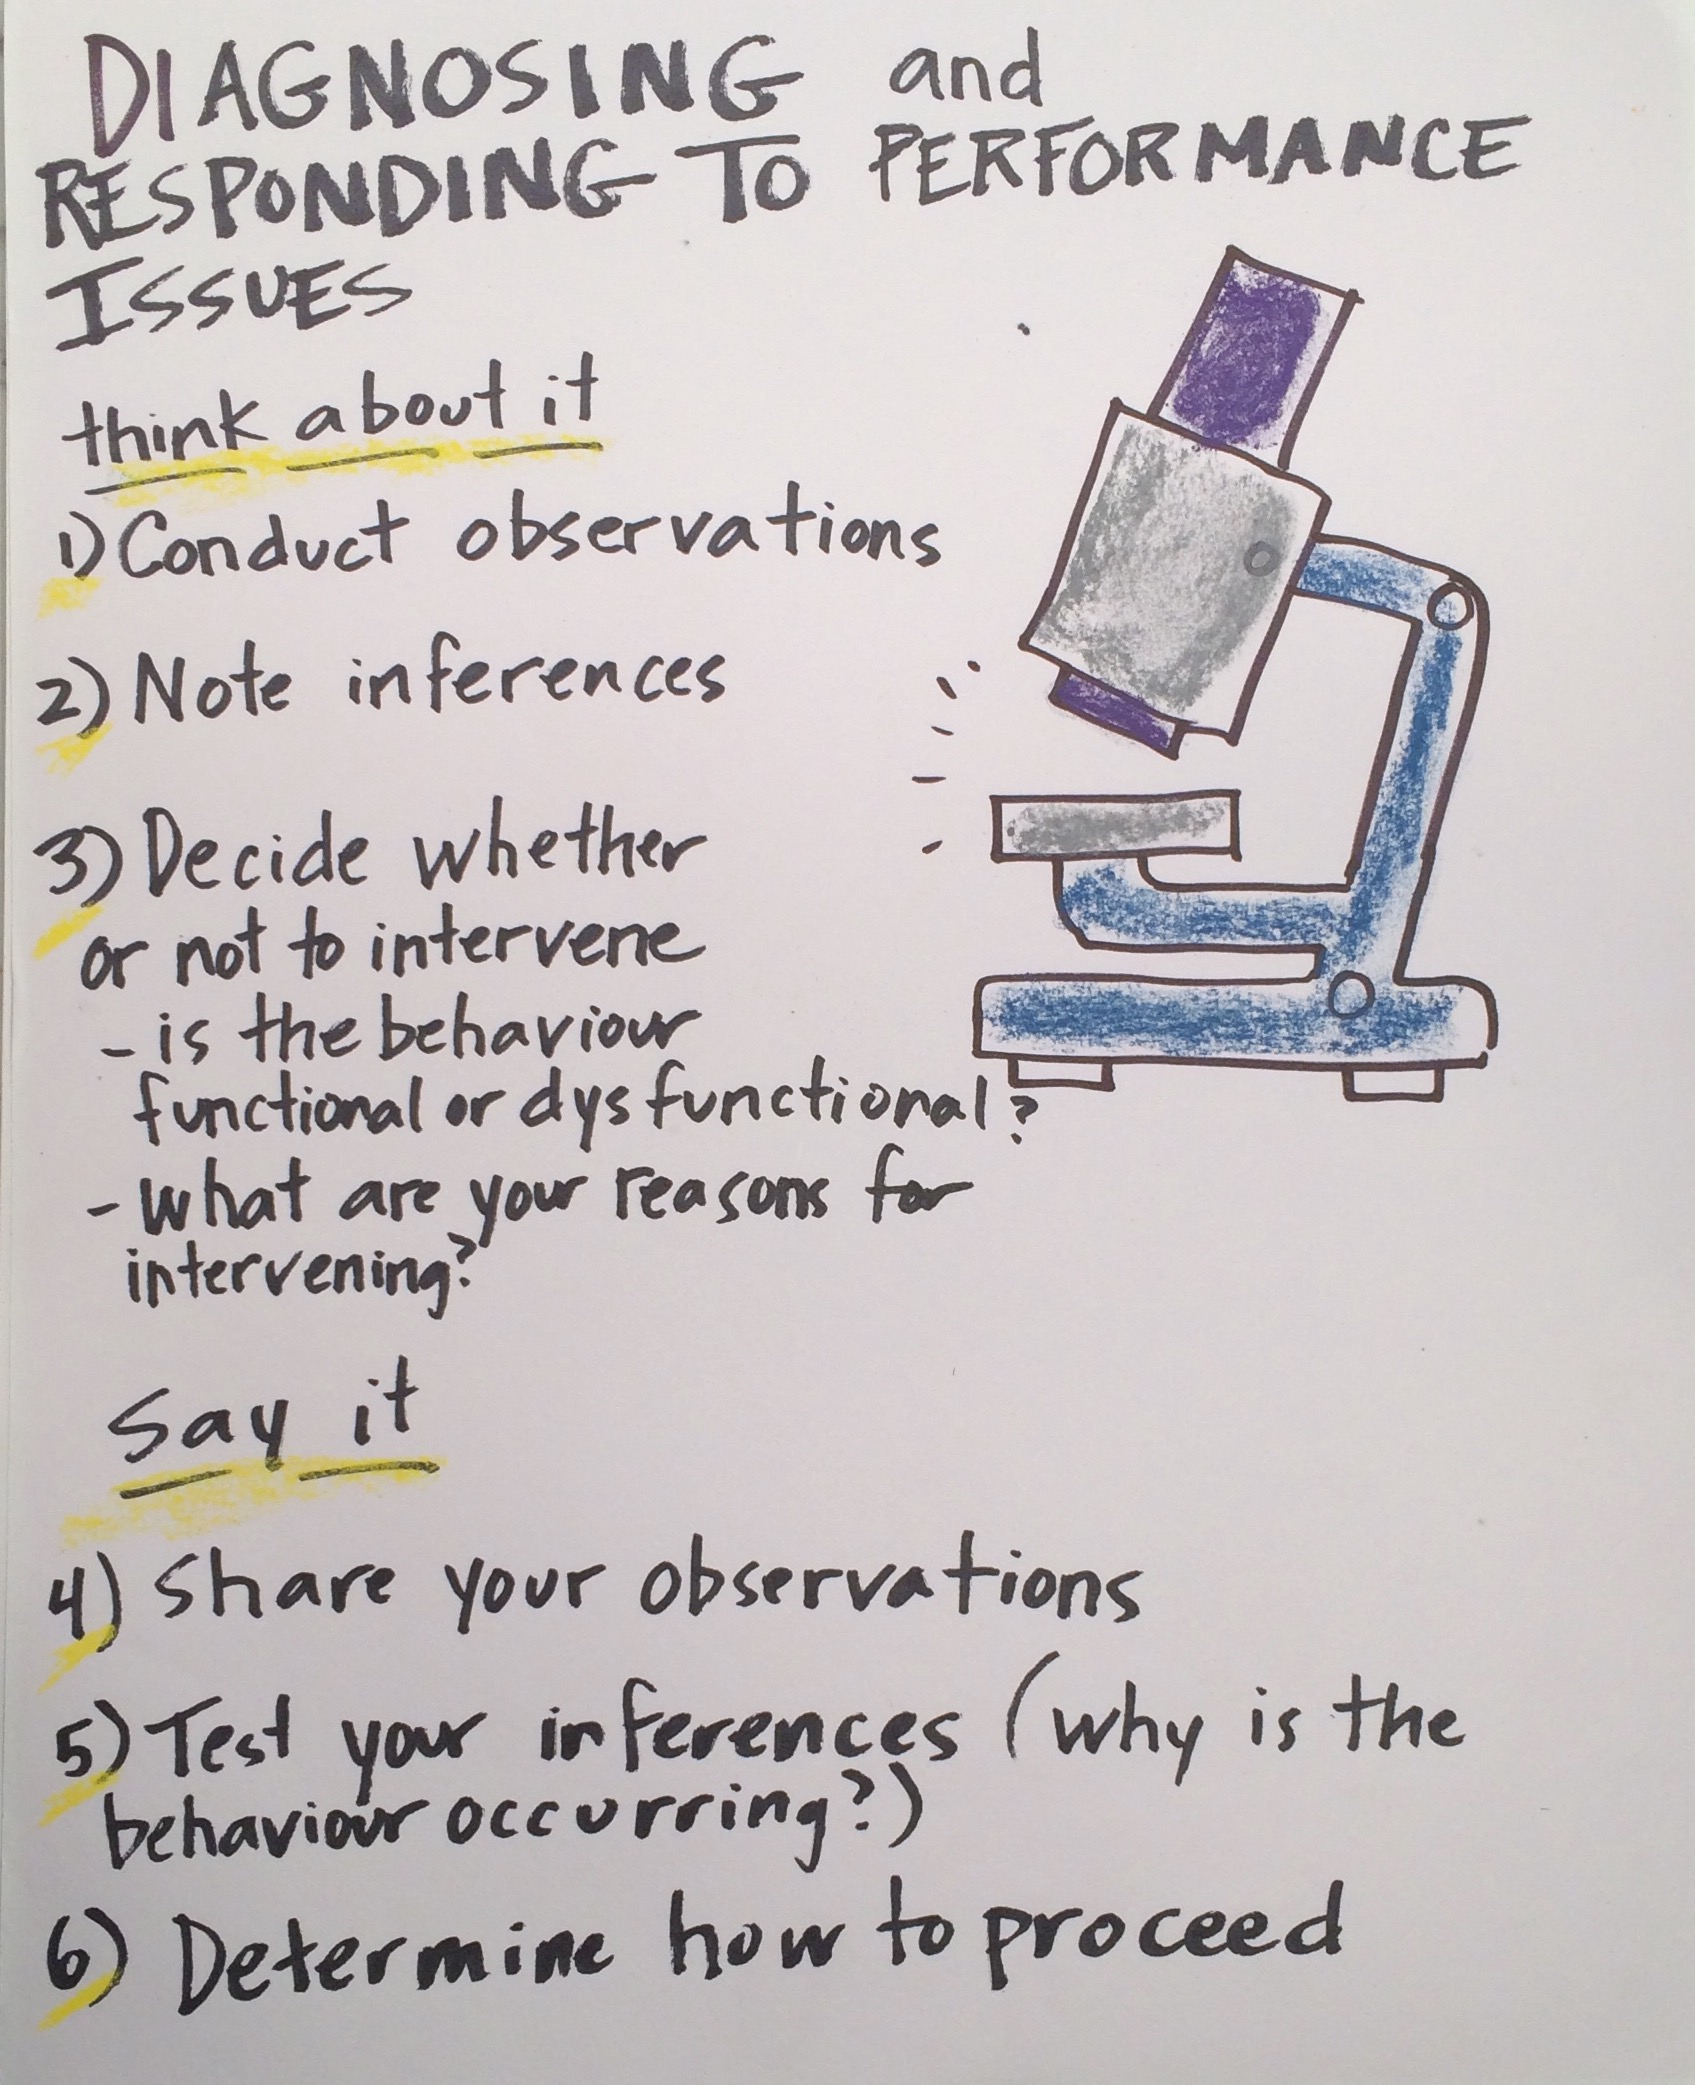 DIAGNOSING and
RESPONDING TO PERFORMANCE
ISSUES
think about it
1) Conduct observations
2) Note inferences
3) Decide whether
or not to intervene
- is the behaviour
functional or dysfunctional?
- What are your reasons for
intervening?
Say it
4) Share your observations
5) Test your inferences (why is the
behaviour occurring?)
6) Determine how to proceed